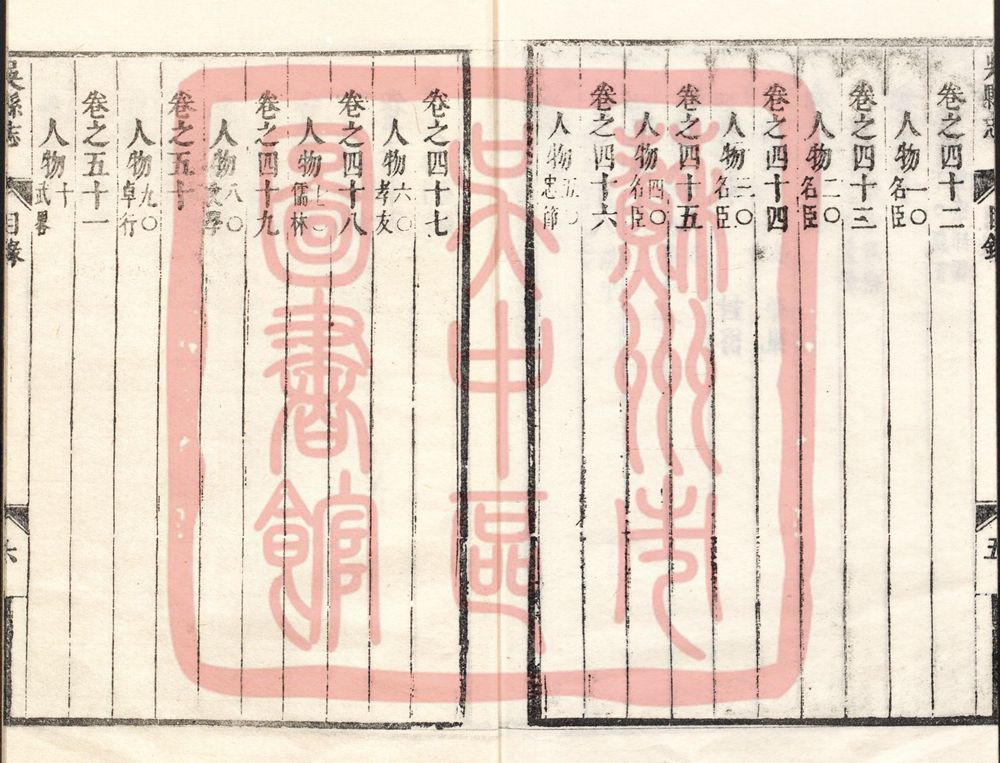 吳縣志
目錄
五
卷之四十二
人物一〇名臣
卷之四十三
人物二〇名臣
卷之四十四
人物三〇名臣
卷之四十五
人物四〇名臣
卷之四十六
人物五〇忠節
卷之四十七
人物六〇孝友
卷之四十八
人物七〇儒林
卷之四十九
人物八〇文學
卷之五十
人物九〇卓行
卷之五十一
人物十 武畧
吳縣志
目錄
六
蘇州市
吳中區
圖書館